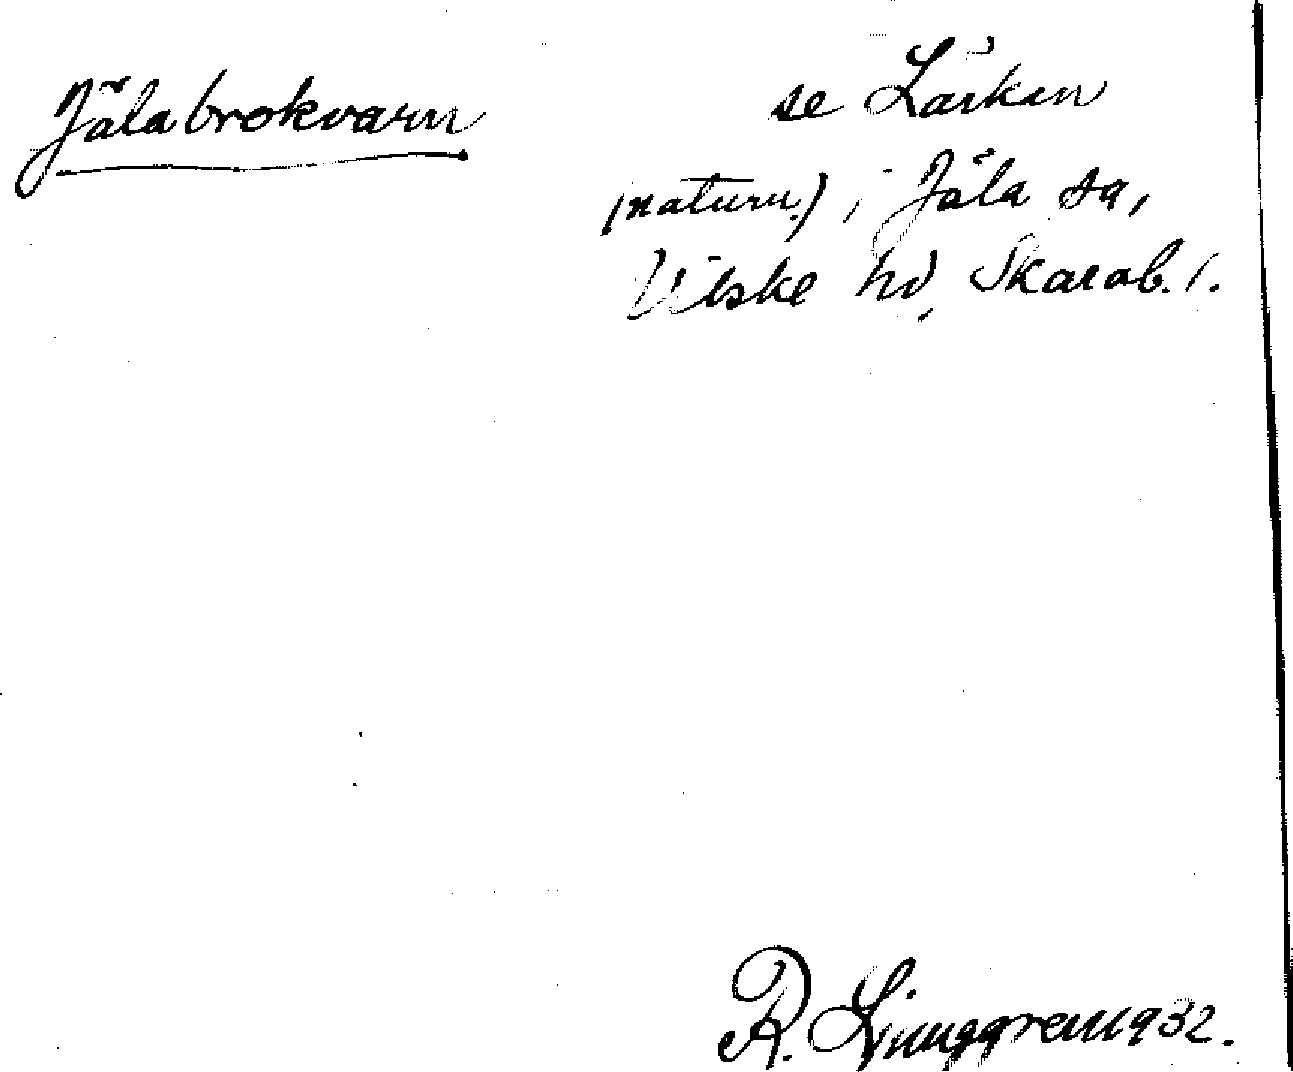 Jäla brokvarn se Lärken
(naturn.), i Jäla sn,
Vilske hd, Skarab. l.
R. Ljunggren 1932.